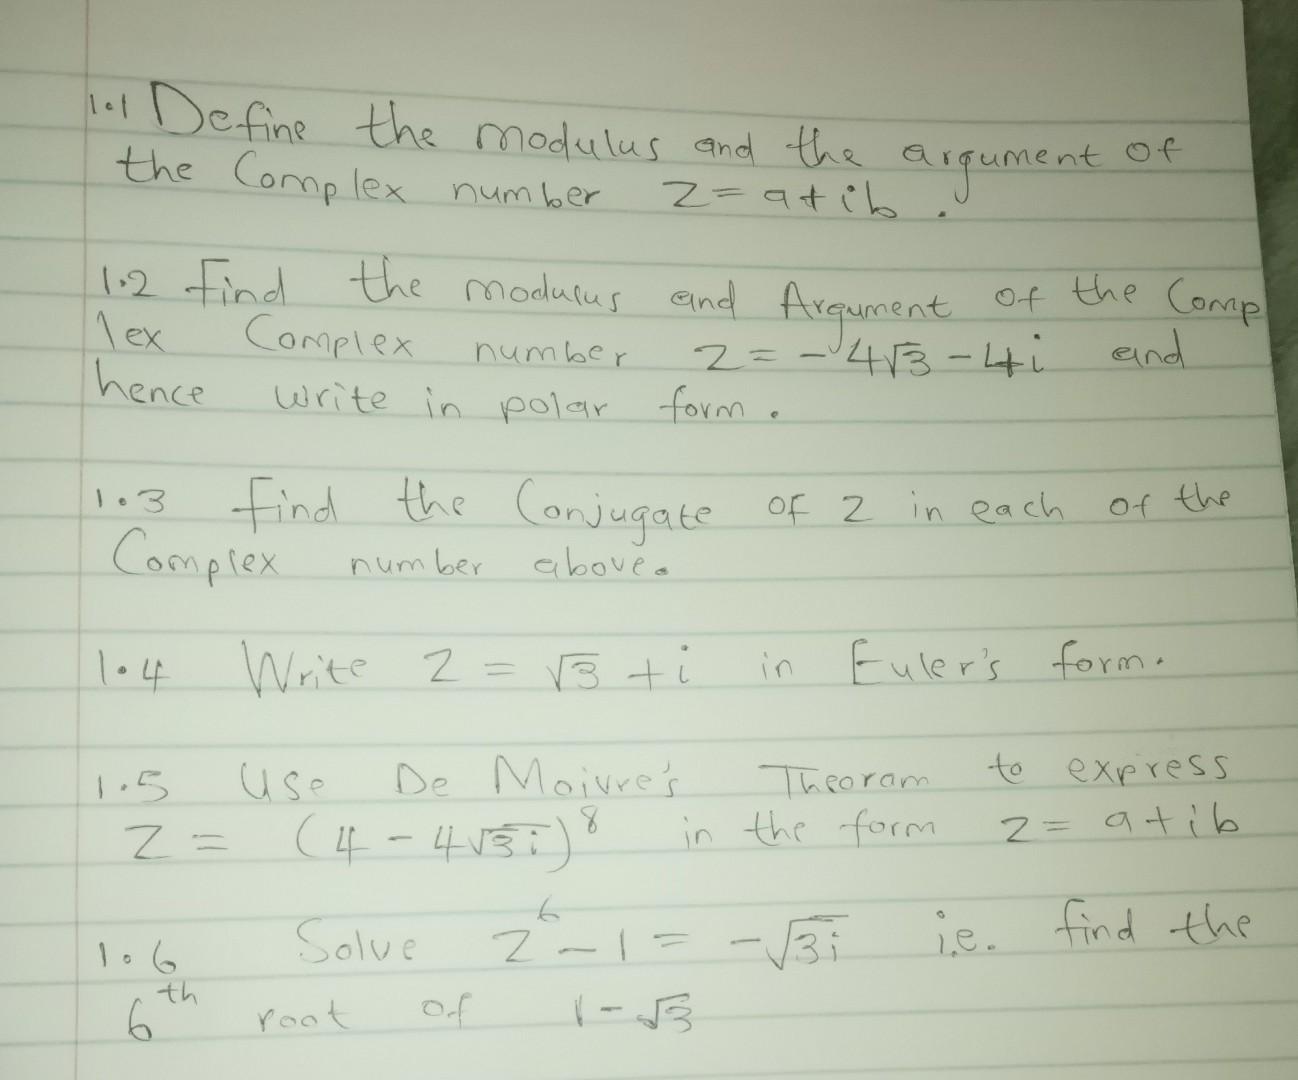 1.1 Define the modulus and the argument of
the Complex number z = a + ib .
1.2 Find the modulus and Argument of the Comp
lex Complex number z = -4√3 - 4i and
hence write in polar form .
1.3 find the Conjugate of z in each of the
Complex number above.
1.4 Write z = √3 + i in Euler's form.
1.5 Use De Moivre's Theoram to express
z = (4 - 4√3i)⁸ in the form z = a + ib
1.6 Solve z⁶ - 1 = -√3i i.e. find the
6th root of 1 - √3